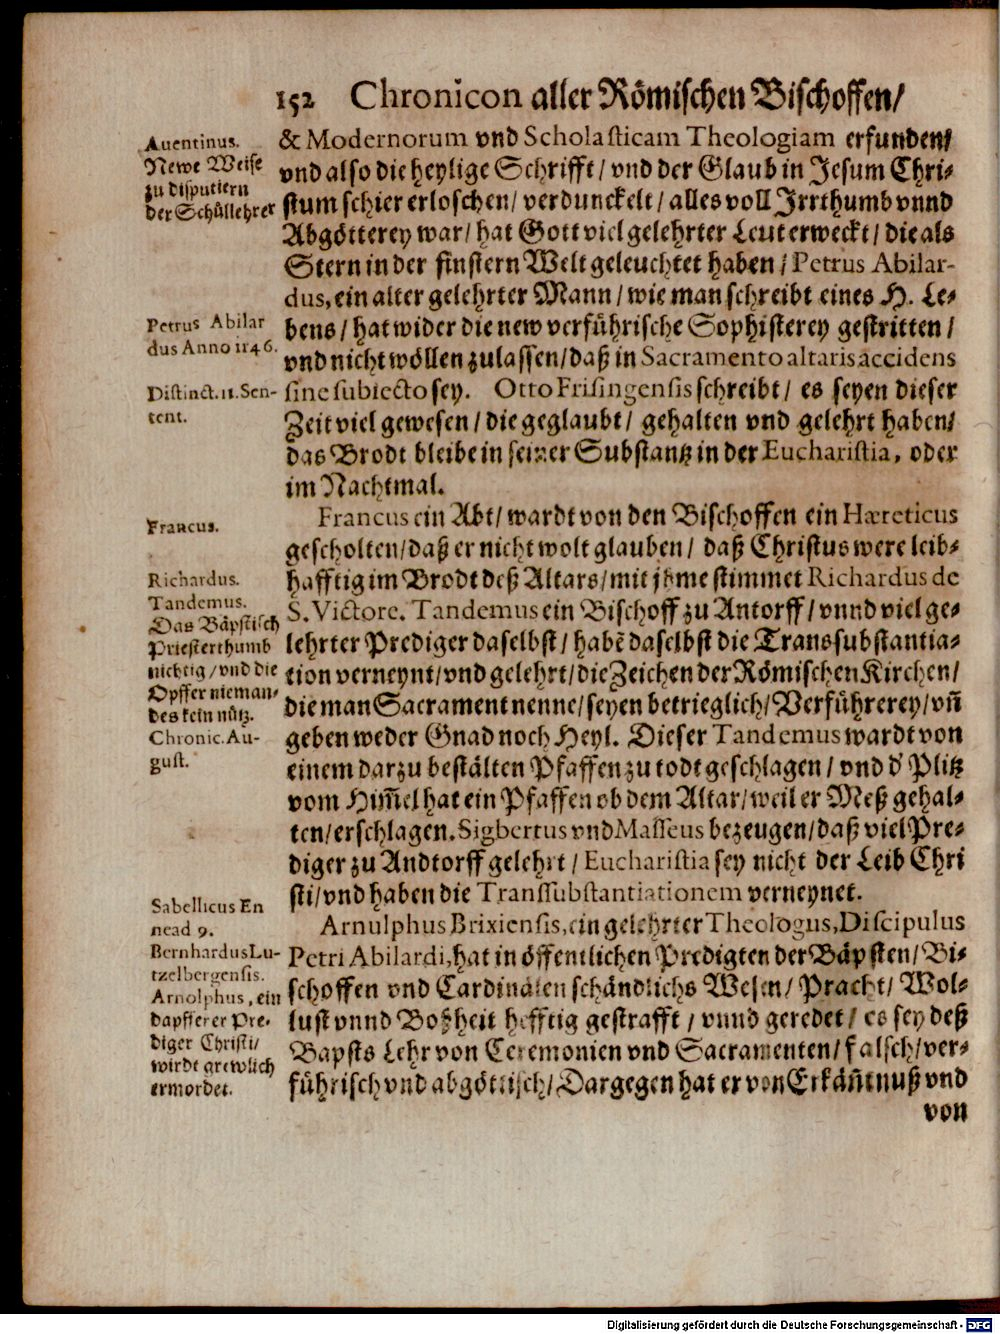 152 Chronicon aller Römischen Bischoffen/
Auentinus.
Newe Weise
zu disputiern
der Schůllehrer
& Modernorum vnd Scholasticam Theologiam erfunden/
vnd also die heylige Schrifft / vnd der Glaub in Jesum Chri-
stum schier erloschen/ verdunckelt / alles voll Irrthumb vnnd
Abgötterey war/ hat Gott viel gelehrter Leut erweckt / die als
Stern in der finstern Welt geleuchtet haben / Petrus Abilar-
dus, ein alter gelehrter Mann / wie man schreibt eines H. Le-
Petrus Abilar
dus Anno 1146.
bens / hat wider die new verführische Sophisterey gestritten /
vnd nicht wöllen zulassen/daß in Sacramento altaris accidens
Distinct. 11. Sen-
tent.
sine subiecto sey. Otto Frisingensis schreibt / es seyen dieser
Zeit viel gewesen / die geglaubt / gehalten vnd gelehrt haben/
das Brodt bleibe in seiner Substantz in der Eucharistia, oder
im Nachtmal.
Francus.
Francus ein Abt/ wardt von den Bischoffen ein Hæreticus
gescholten/daß er nicht wolt glauben / daß Christus were leib-
Richardus.
Tandemus.
Das Bäpstisch
Priesterthumb
nichtig / vnd die
Opffer nieman-
des kein nütz.
Chronic. Au-
gust.
hafftig im Brodt deß Altars/mit jhme stimmet Richardus de
S. Victore. Tandemus ein Bischoff zu Antorff / vnnd viel ge-
lehrter Prediger daselbst / habē daselbst die Transsubstantia-
tion verneynt/vnd gelehrt/die Zeichen der Römischen Kirchen/
die man Sacrament nenne/seyen betrieglich/Verführerey/vñ
geben weder Gnad noch Heyl. Dieser Tandemus wardt von
einem darzu bestälten Pfaffen zu todt geschlagen / vnd d' Plitz
vom Him̃el hat ein Pfaffen ob dem Altar/weil er Meß gehal-
ten/erschlagen. Sigbertus vnd Masseus bezeugen/daß viel Pre-
diger zu Andtorff gelehrt / Eucharistia sey nicht der Leib Chri
sti/vnd haben die Transsubstantiationem verneynet.
Sabellicus En
nead 9.
Bernhardus Lu-
tzelbergensis.
Arnolphus, ein
dapfferer Pre-
diger Christi/
wirdt grewlich
ermordet.
Arnulphus Brixiensis, ein gelehrter Theologus, Discipulus
Petri Abilardi, hat in öffentlichen Predigten der Bäpsten / Bi-
schoffen vnd Cardinälen schändlichs Wesen / Pracht / Wol-
lust vnnd Boßheit hefftig gestrafft / vnnd geredet / es sey deß
Bapsts Lehr von Ceremonien vnd Sacramenten / falsch/ver-
führisch vnd abgöttisch/Dargegen hat er von Erkäñtnuß vnd
von
Digitalisierung gefördert durch die Deutsche Forschungsgemeinschaft - DFG